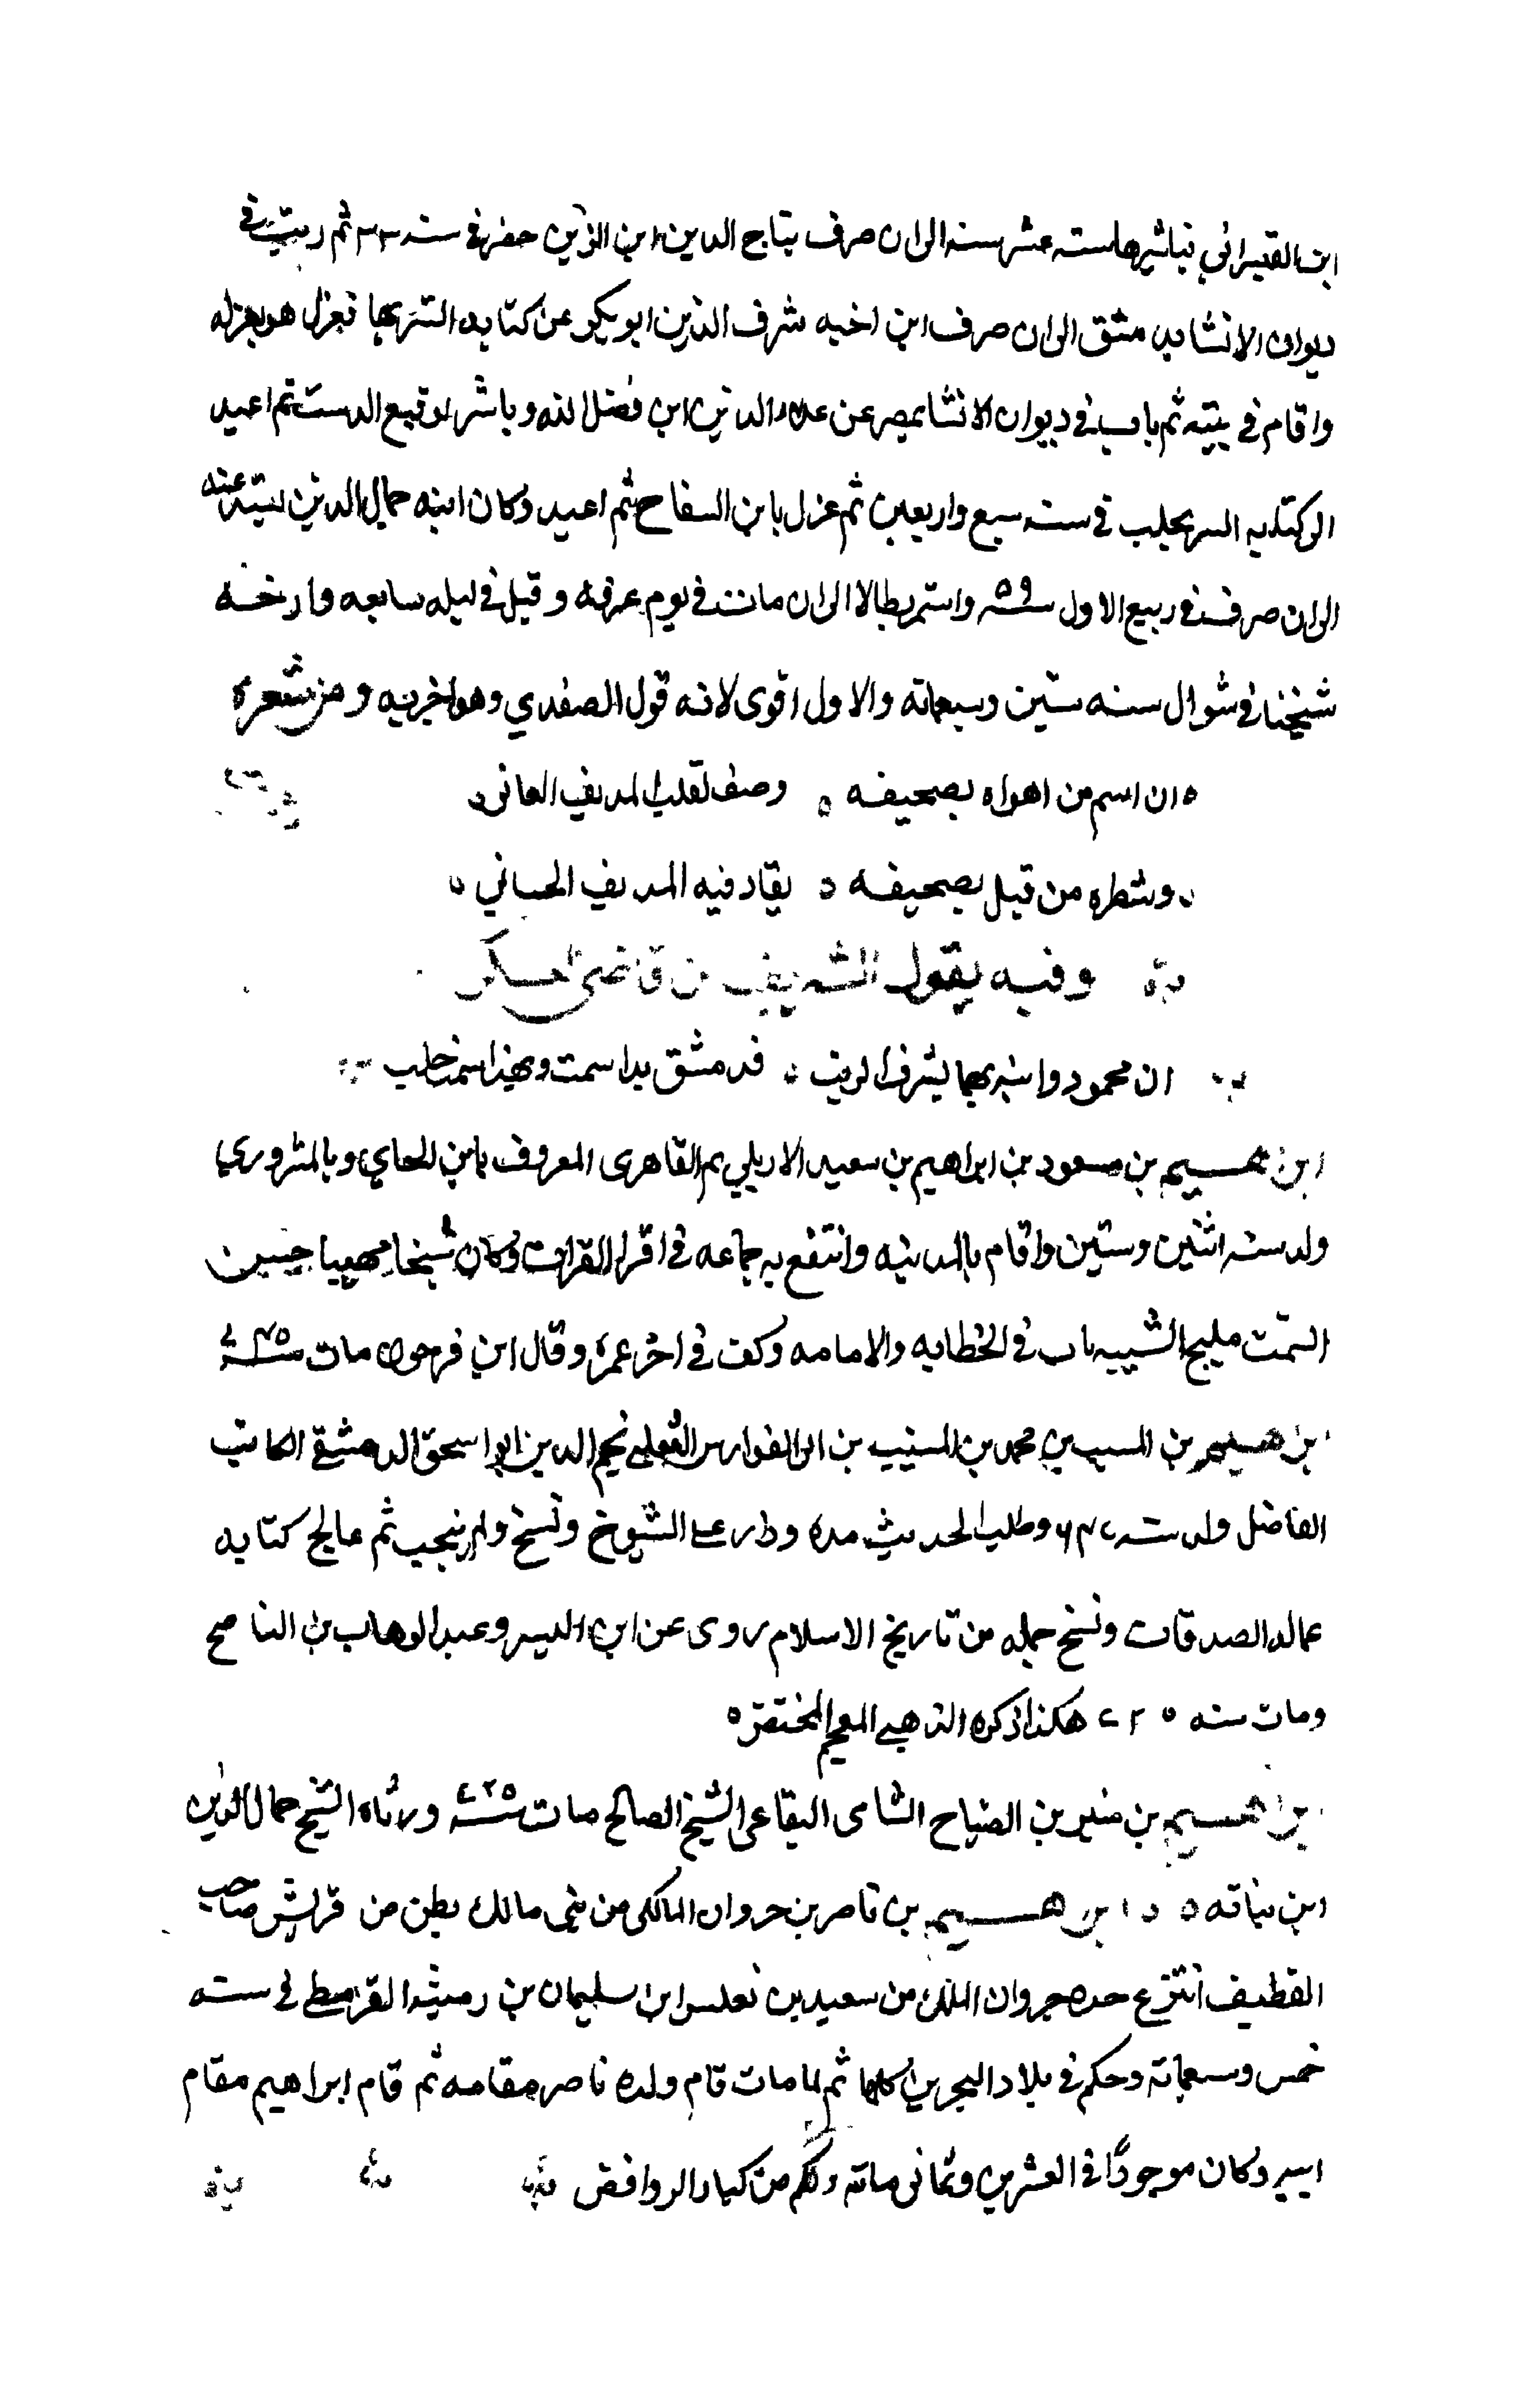 ابن القيسراني فباشرها ستة عشر سنه الى ان صرف بتاج الدين ابن الزين حضر في سنه ٣٣ ثم رتب في
ديوان الانشا بدمشق الى ان صرف ابن اخيه شرف الدين ابو بكر عن كتابه السر بها فعزل هو بعزله
واقام في بيته ثم ناب في ديوان الانشا بمصر عن علاء الدين ابن فضل الله وباشر توقيع الدست ثم اعيد
الى كتابه السر بحلب في سنه سبع واربعين ثم عزل بابن السفاح ثم اعيد وكان ابنه جمال الدين يسد عنه
الى ان صرف في ربيع الاول سنة ٥٩ واستمر بطالا الى ان مات في يوم عرفه وقيل في ليله سابعه وارخه
شيخنا في شوال سنه ستين وسبعمائه والاول اقوى لانه قول الصفدي وهو اخبر به ومن شعره
ان اسم من اهواه تصحيفه ٥ وصف لقلب المدنف العانى
وشطره من قبل تصحيفه ٥ يقاد فيه المدنف الجاني ٥
وفيه يقول الشريف بن قاضى العسكر
ان محمود وابنه بهما تشرف الرتب ٥ فدمشق بذا سمت وبهذا سمت حلب
ابرهيم بن مسعود بن ابراهيم بن سعيد الاربلي ثم القاهرى المعروف بابن الجابي وبالمسروري
ولد سنه اثنين وستين واقام بالمدينه وانتفع به جماعه في اقرا القرات وكان شيخا مهيبا حسن
السمت مليح الشيبه ناب في الخطابه والامامه وكف في اخر عمره وقال ابن فرحون مات سنة ٧٤٥
ابرهيم بن المسيب بن محمد بن المسيب بن ابى الفوارس الثعلبي نجم الدين ابو اسحق الدمشقي الكاتب
الفاضل ولد سنه ٦٤٧ وطلب الحديث مده ودار على الشيوخ ونسخ ولم ينجب ثم عالج كتابه
عماله الصدقات ونسخ جمله من تاريخ الاسلام روى عن ابن ابى اليسر وعبد الوهاب بن الناصح
ومات سنه ٧٢٥ هكذا ذكره الذهبي المعجم المختص ٥
ابرهيم بن منير بن الصياح الشامى البقاعى الشيخ الصالح مات سنة ٧٢٥ ورثاه الشيخ جمال الدين
ابن نباته ٥ ابرهيم بن ناصر بن جروان المالكى من بنى مالك بطن من قريش صاحب
القطيف انتزع جده جروان الملك من سعيد بن مغامس ابن سليمان بن رميثه القرمطى في سنه
خمس وسبعمائة وحكم في بلاد البحرين كلها ثم لما مات قام ولده ناصر مقامه ثم قام ابراهيم مقام
ابيه وكان موجودًا في العشرين وثمانى مائه وهم من كبار الروافض